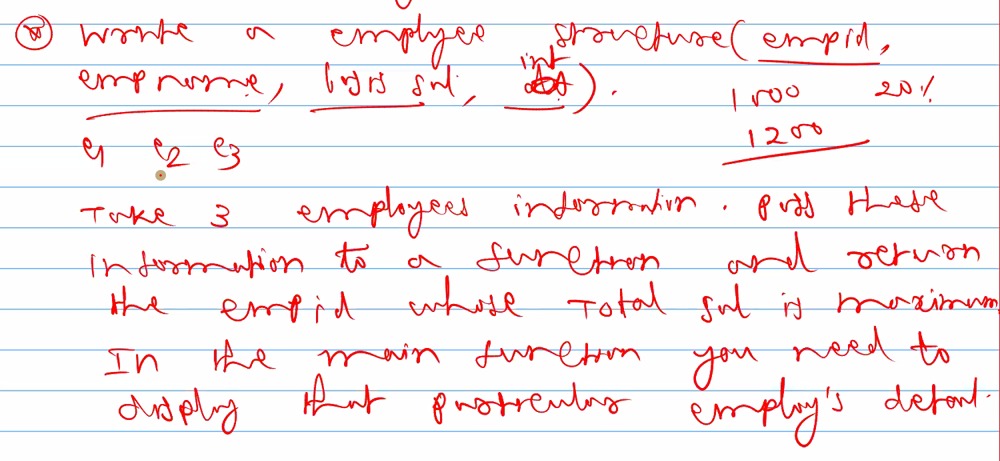 Write a employee structure( empid,
empname, basis sal, int ).
1000 20%
1200
e1 e2 e3
Take 3 employees information. pass these
information to a function and return
the empid whose Total sal is maximum,
In the main function you need to
display that particular employ's detail.